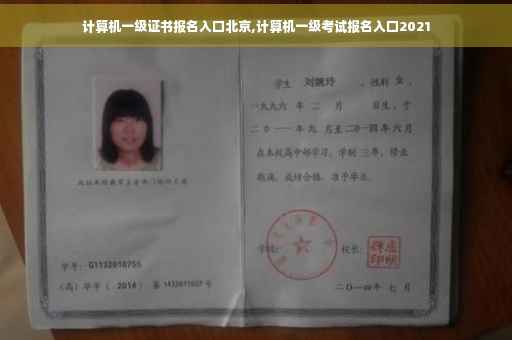 计算机一级证书报名入口北京,计算机一级考试报名入口2021
学生 刘婉玲 ,性别 女 ,
一九九六 年 二 月 日生,于
二〇一一年九 月至二〇一四年六月
在本校高中部学习,学制 三年,修业
期满,成绩合格,准予毕业。
学号: G1132010755
(高)毕字( 2014 )第 1432011027 号
学校:
校长:
二〇一四年 七 月